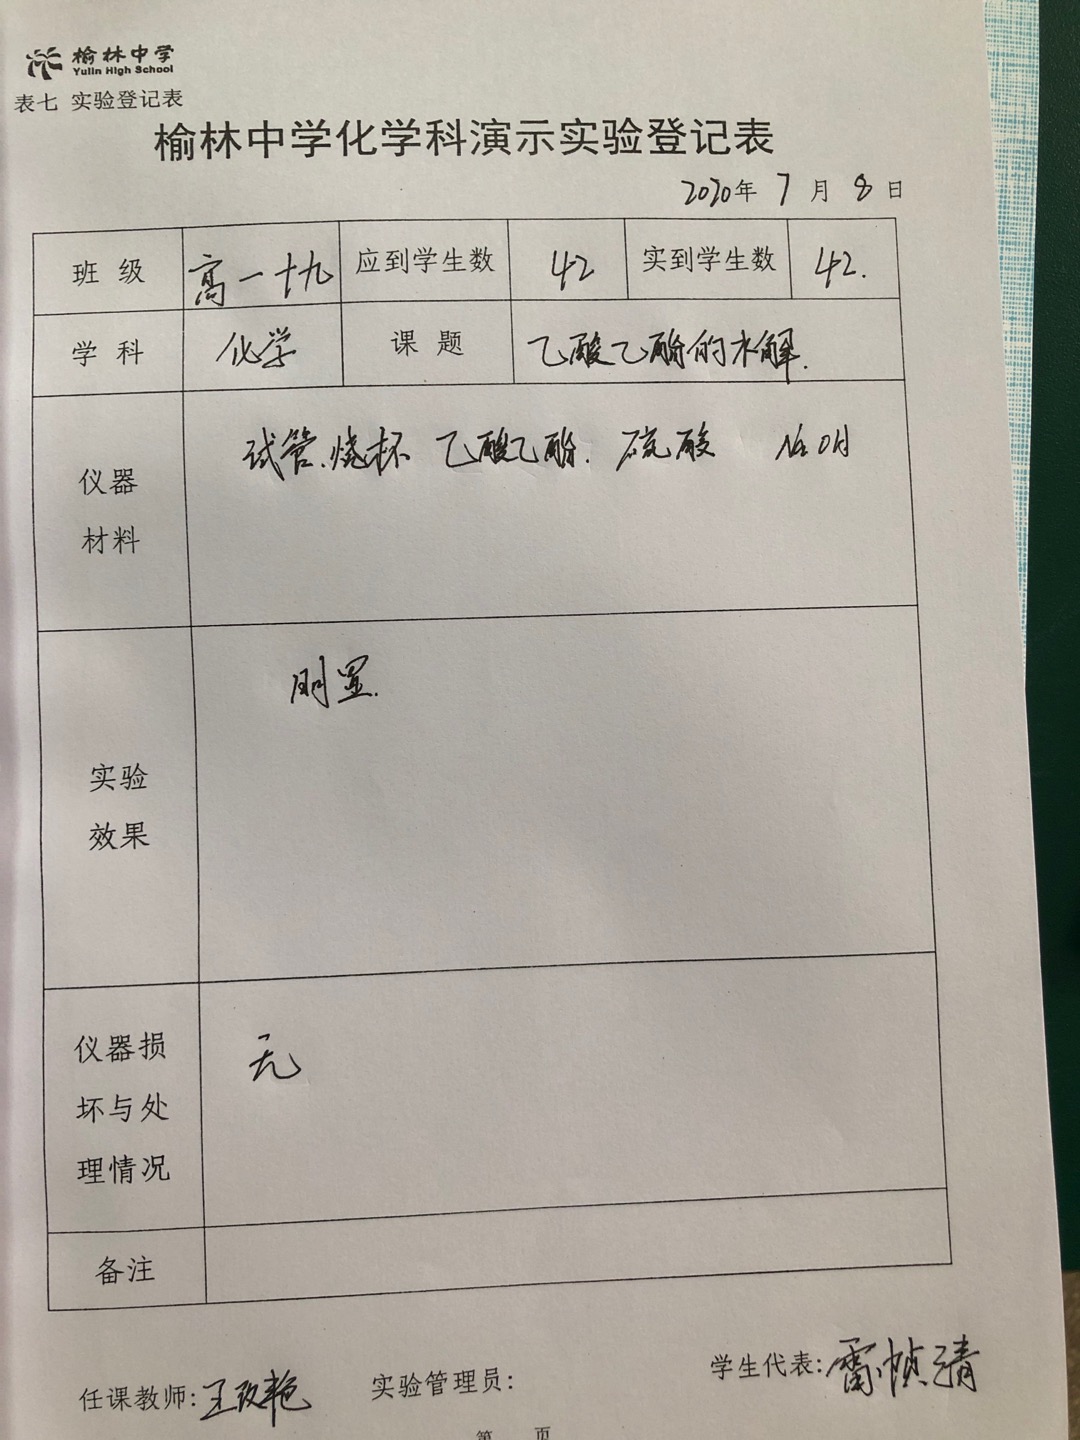 榆林中学
Yulin High School
表七 实验登记表
榆林中学化学科演示实验登记表
2020年 7 月 8 日
班 级 高一十九 应到学生数 42 实到学生数 42.
学 科 化学 课 题 乙酸乙酯的水解.
仪器
材料
试管.烧杯 乙酸乙酯. 硫酸 NaOH
实验
效果
明显.
仪器损
坏与处
理情况
无
备注
任课教师:王改艳 实验管理员: 学生代表:雷桢清
第 页